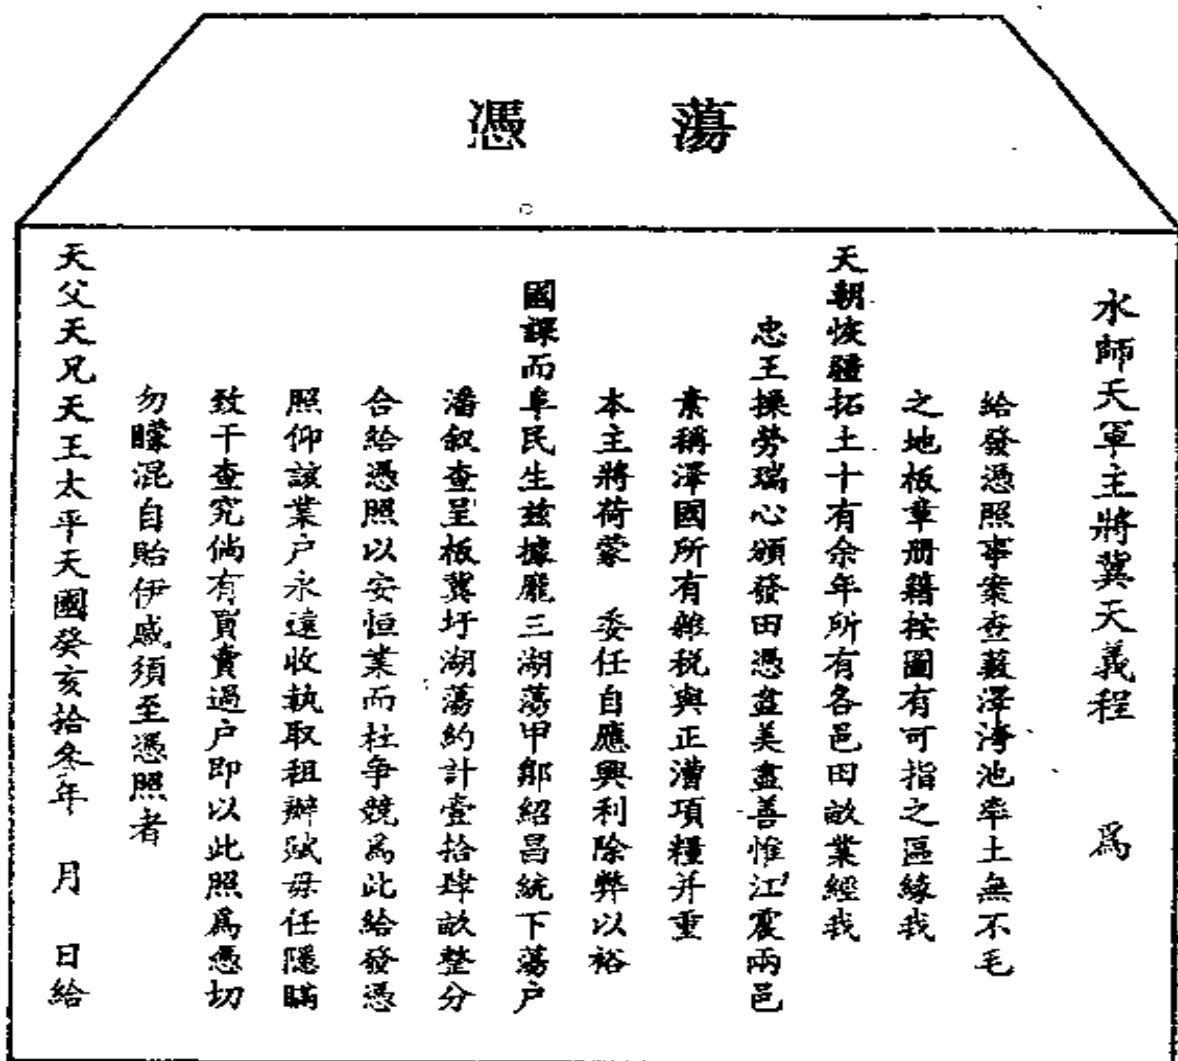 蕩憑
水師天軍主將冀天義程　爲
給發憑照事案查藪澤海池率土無不毛
之地板章册籍按圖有可指之區緣我
天朝恢疆拓土十有余年所有各邑田畝業經我
忠王操勞瑞心頒發田憑盡美盡善惟江震兩邑
素稱澤國所有雜税與正漕項糧并重
本主將荷蒙　委任自應興利除弊以裕
國課而阜民生兹據龐三湖蕩甲鄒紹昌統下蕩户
潘叙查呈板冀圩湖蕩約計壹拾肆畝整分
合給憑照以安恒業而杜争競爲此給發憑
照仰該業户永遠收執取租辦賦毋任隱瞞
致干查究倘有買賣過户即以此照爲憑切
勿矇混自貽伊戚須至憑照者
天父天兄天王太平天國癸亥拾叁年　月　日給